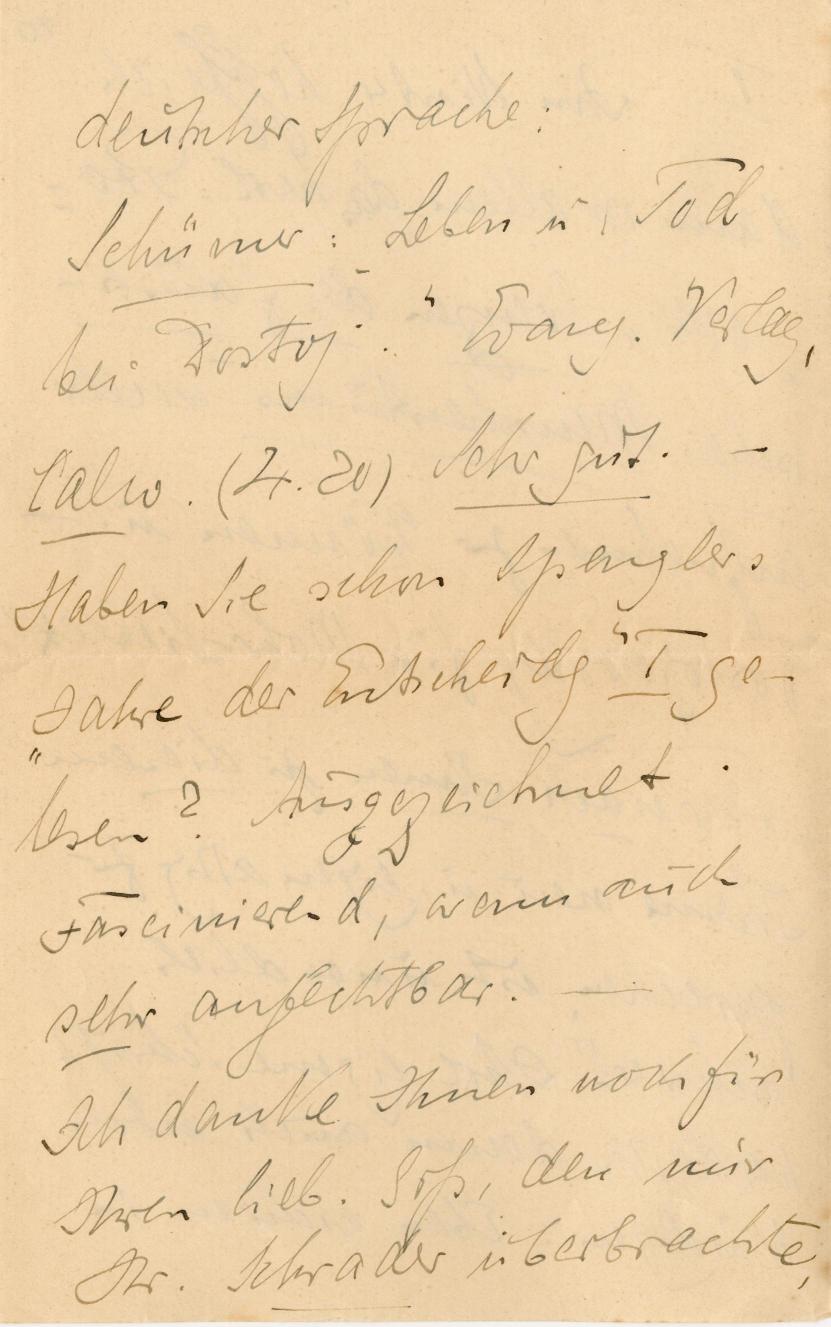 deutscher Sprache:
Schümer: „Leben u. Tod
bei Dostoj.“ Evang. Verlag,
Calw. (4.20) Sehr gut. —
Haben Sie schon Spenglers
„Jahre der Entscheidg“ I ge-
lesen? Ausgezeichnet.
Fascinierend, wenn auch
sehr anfechtbar. —
Ich danke Ihnen noch für
Ihren lieb. Grß, den mir
Hr. Schrader überbrachte,